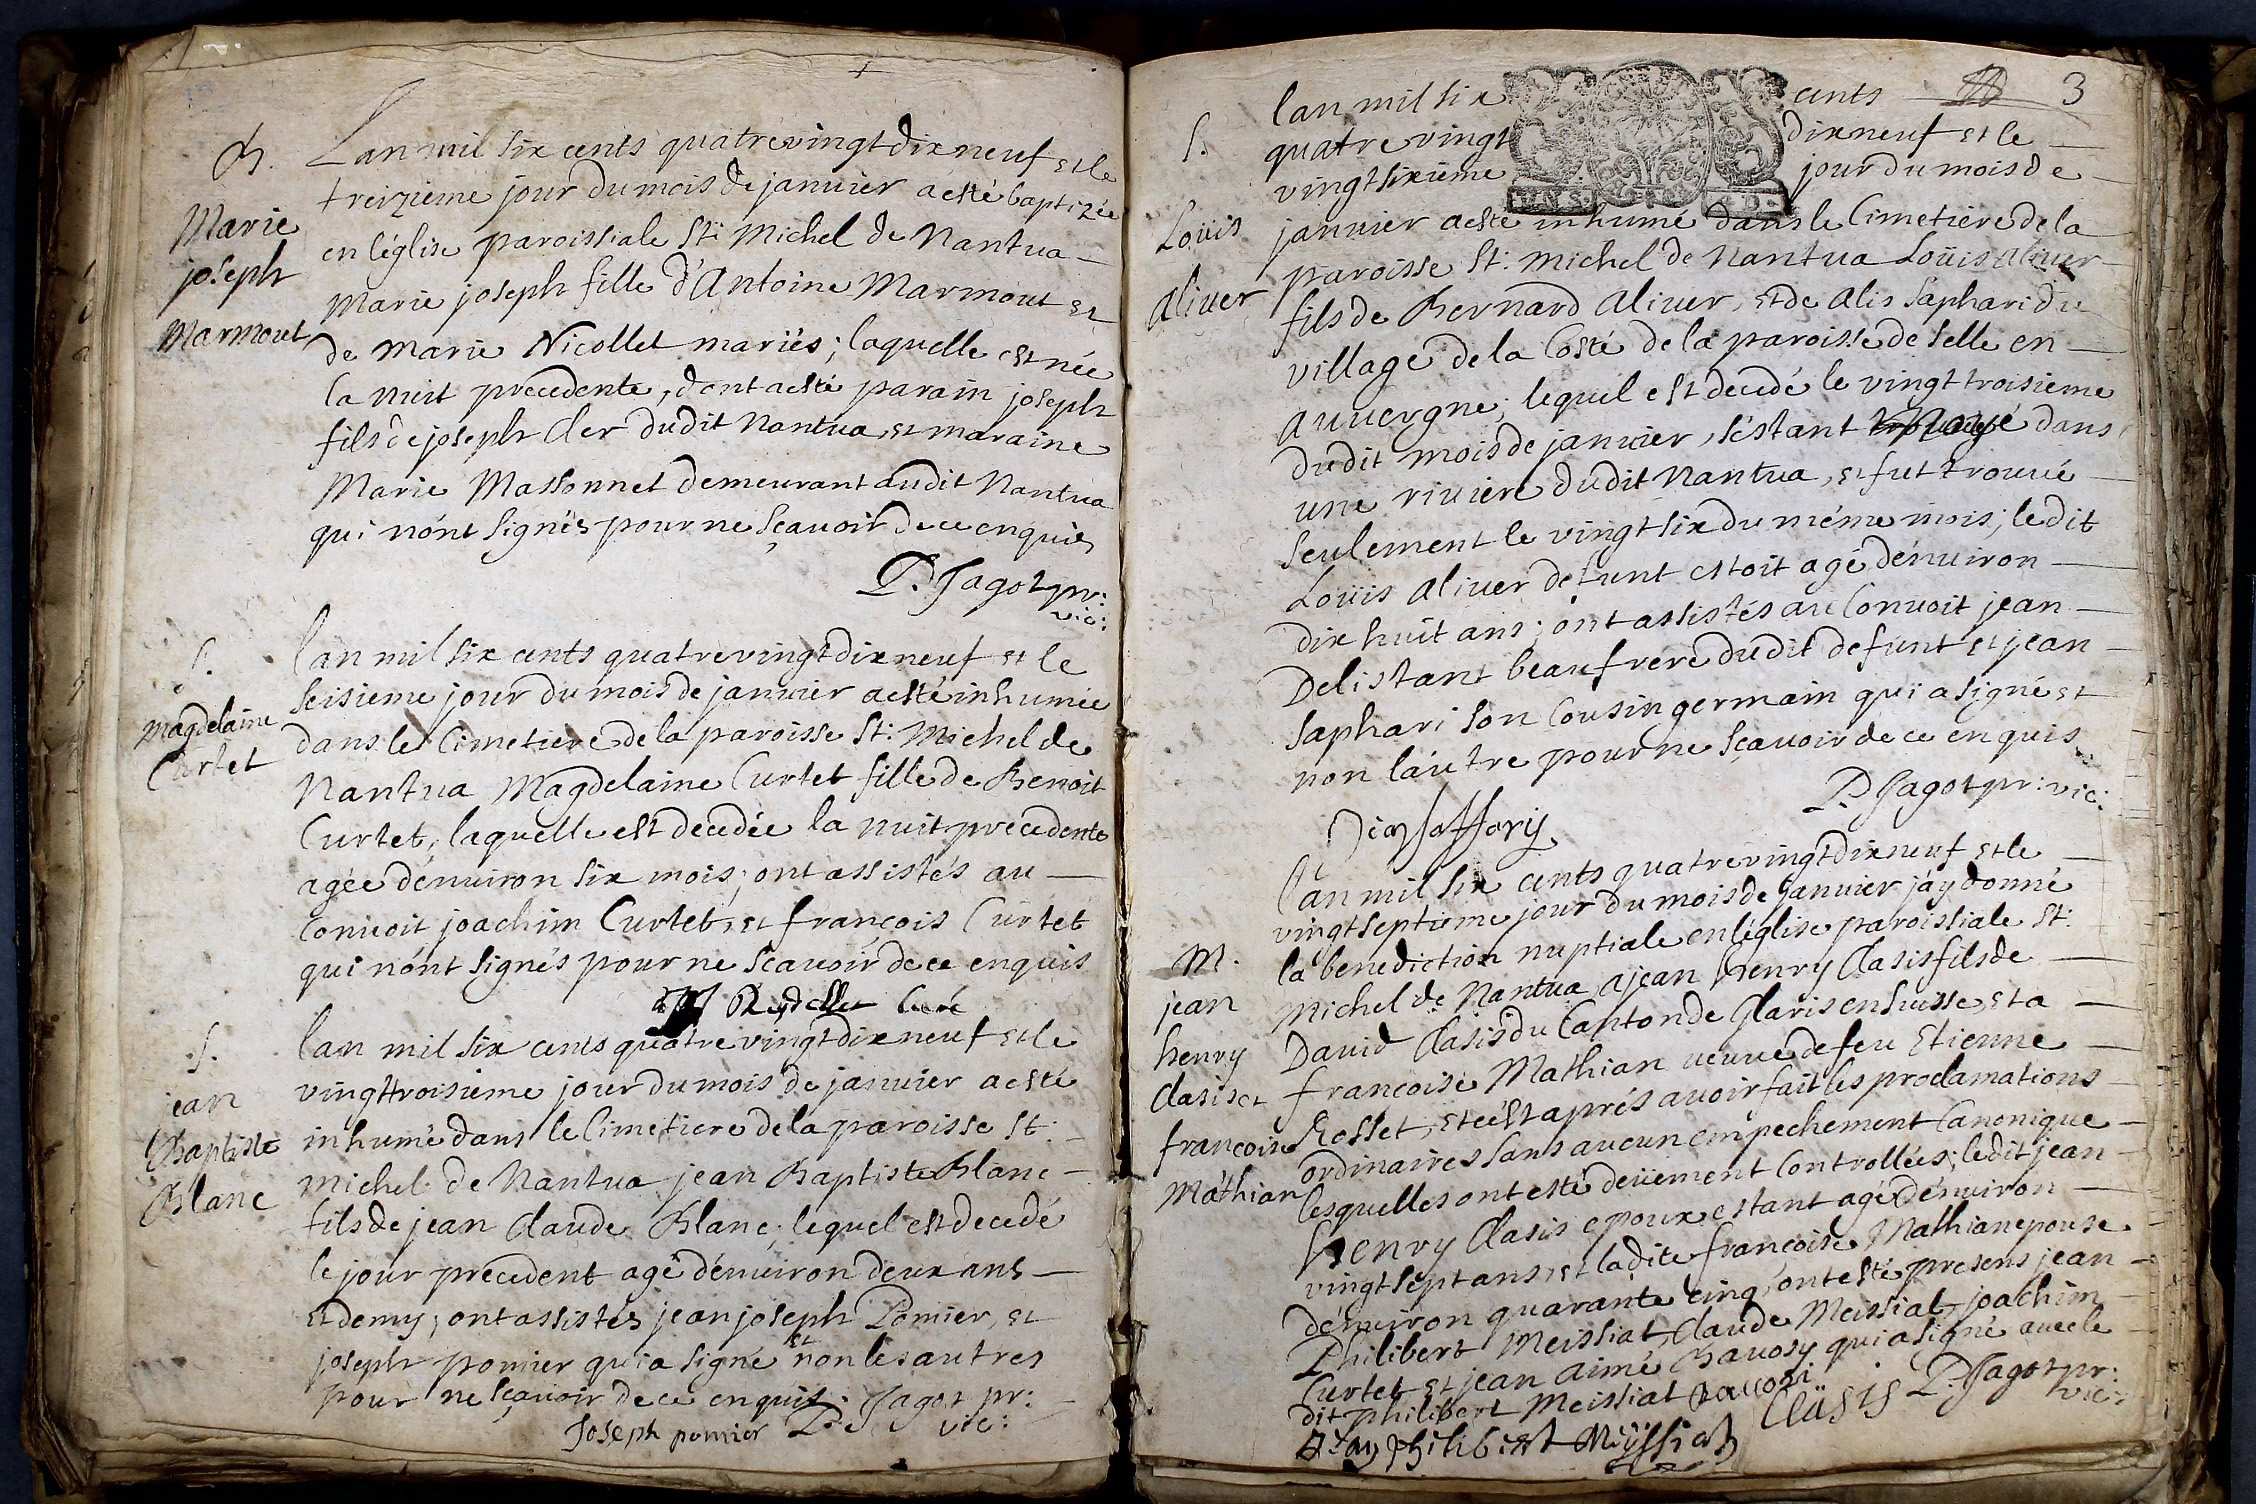 B.
Marie
joseph
Marmout
Lan mil six cents quatrevingt dix neuf et le
treizieme jour du mois de janvier a esté baptizée
en l'église paroissiale St: Michel de Nantua
Marie joseph fille d'Antoine Marmout et
de Marie Nicollet mariés; laquelle est née
la nuit precedente, dont a esté parain joseph
fils de joseph Cler dudit Nantua, et maraine
Marie Massonnet demeurant audit Nantua
qui n'ont signés pour ne sçavoir de ce enquis
P. Jagot pr: vic:
S.
Magdelaine
Curtet
lan mil six cents quatrevingt dix neuf et le
seisieme jour du mois de janvier a esté inhumée
dans le Cimetiere de la paroisse St: Michel de
Nantua Magdelaine Curtet fille de Benoit
Curtet, laquelle est decedée la nuit precedente
agée d'enuiron six mois; ont assistés au
Conuoit joachim Curtet, et françois Curtet
qui n'ont signés pour ne scavoir de ce enquis
Reydellet Curé
S.
jean
Baptiste
Blanc
lan mil six cents quatre vingt dix neuf et le
vingt troisieme jour du mois de janvier a esté
inhumé dans le Cimetiere de la paroisse St:
Michel de Nantua jean Baptiste Blanc
fils de jean Claude Blanc, lequel est decedé
le jour precedent agé d'enuiron deux ans
et demy; ont assistés jean joseph Pomier, et
joseph pomier qui a signé et non les autres
pour ne sçavoir de ce enquis. P. Jagot pr: vic:
Joseph pomier
3
S.
Loüis
Aliuer
lan mil six cents
quatre vingt dix neuf et le
vingt sixieme jour du mois de
januier a esté inhumé dans le Cimetiere de la
paroisse St: Michel de Nantua Loüis Aliuer
fils de Bernard Aliuer, et de Alis Saphari du
village de la Coste de la paroisse de Selle en
Auuergne; lequel est decedé le vingt troisieme
dudit mois de januier, s'estant dans
une riuiere dudit Nantua, et fut trouué
seulement le vingt six du même mois; ledit
Loüis Aliuer defunt estoit agé d'enuiron
dix huit ans; ont assistés au Conuoit jean
Delistant beaufrere dudit defunt et jean
Saphari son Cousin germain qui a signé et
non l'autre pour ne sçavoir de ce enquis
P. Jagot pr: vic:
M.
jean
henry
Clasis et
francoise
Mathian
lan mil six cents quatre vingt dix neuf et le
vingt septieme jour du mois de januier j'ay donné
la benediction nuptiale en l'église paroissiale St:
Michel de Nantua, a jean Henry Clasis fils de
David Clasis du Canton de Glaris en Suisse, et a
francoise Mathian veuue de feu Etienne
Rosset, et c'est aprés auoir fait les proclamations
ordinaires sans aucun empechement Canonique
lesquelles ont esté deüement Controllées; ledit jean
Henry Clasis epoux estant agé d'enuiron
vingt sept ans, et ladite francoise Mathian epouse
d'enuiron quarante cinq, ont esté presens jean
Philibert Meissiat, Claude Meissiat, joachim
Curtet et jean Aimé Bauosy qui a signé auec le
dit philibert Meissiat
Clasis P. Jagot pr: vic: